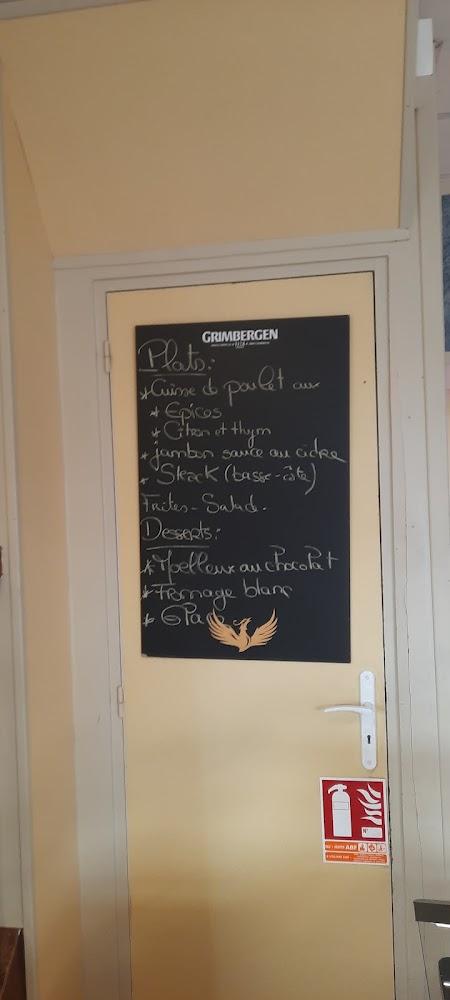 GRIMBERGEN
Plats:
* Cuisse de poulet aux
* Epices
* Citron et thym
* jambon sauce au cidre
* Steack (basse-côte)
Frites - Salade.
Desserts:
* Moelleux au chocolat
* Fromage blanc
* Glace
N°
ABF